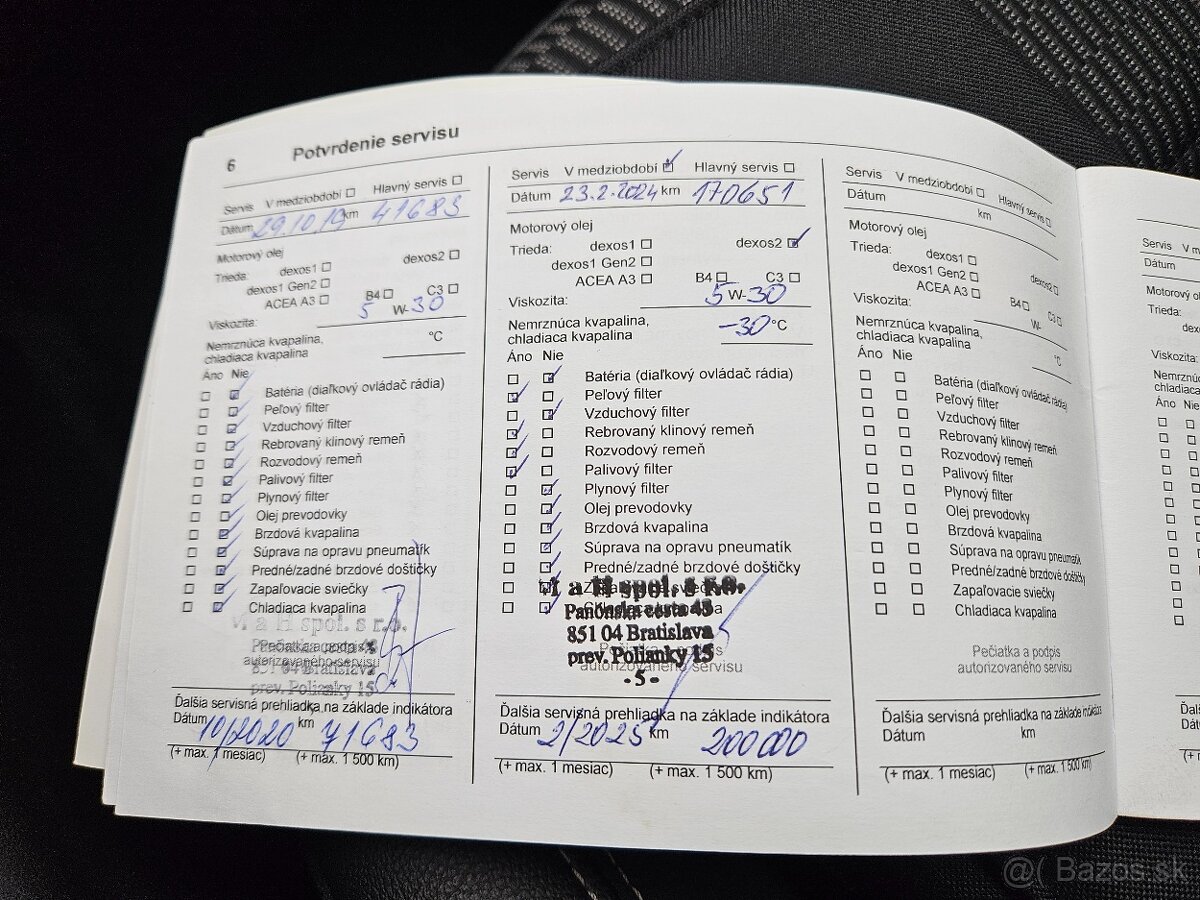 6 Potvrdenie servisu
Servis V medziobdobí Hlavný servis
Dátum 29.10.19 km 41683
Motorový olej
Trieda: dexos1 dexos2
dexos1 Gen2
ACEA A3 B4 C3
Viskozita: 5 W-30
Nemrznúca kvapalina,
chladiaca kvapalina °C
Áno Nie
Batéria (diaľkový ovládač rádia)
Peľový filter
Vzduchový filter
Rebrovaný klinový remeň
Rozvodový remeň
Palivový filter
Plynový filter
Olej prevodovky
Brzdová kvapalina
Súprava na opravu pneumatík
Predné/zadné brzdové doštičky
Zapaľovacie sviečky
Chladiaca kvapalina
M a H spol. s r.o.
Pečiatka a podpis
autorizovaného servisu
851 04 Bratislava
prev. Polianky 15
Ďalšia servisná prehliadka na základe indikátora
Dátum 10/2020 km 71683
(+ max. 1 mesiac) (+ max. 1 500 km)
Servis V medziobdobí Hlavný servis
Dátum 23.2.2024 km 170651
Motorový olej
Trieda: dexos1 dexos2
dexos1 Gen2
ACEA A3 B4 C3
Viskozita: 5 W-30
Nemrznúca kvapalina,
chladiaca kvapalina -30 °C
Áno Nie
Batéria (diaľkový ovládač rádia)
Peľový filter
Vzduchový filter
Rebrovaný klinový remeň
Rozvodový remeň
Palivový filter
Plynový filter
Olej prevodovky
Brzdová kvapalina
Súprava na opravu pneumatík
Predné/zadné brzdové doštičky
M a H spol. s r.o.
Panónska cesta 43
851 04 Bratislava
prev. Polianky 15
autorizovaného servisu
- 5 -
Ďalšia servisná prehliadka na základe indikátora
Dátum 2/2025 km 200000
(+ max. 1 mesiac) (+ max. 1 500 km)
Servis V medziobdobí Hlavný servis
Dátum km
Motorový olej
Trieda: dexos1 dexos2
dexos1 Gen2
ACEA A3 B4 C3
Viskozita: W-
Nemrznúca kvapalina,
chladiaca kvapalina °C
Áno Nie
Batéria (diaľkový ovládač rádia)
Peľový filter
Vzduchový filter
Rebrovaný klinový remeň
Rozvodový remeň
Palivový filter
Plynový filter
Olej prevodovky
Brzdová kvapalina
Súprava na opravu pneumatík
Predné/zadné brzdové doštičky
Zapaľovacie sviečky
Chladiaca kvapalina
Pečiatka a podpis
autorizovaného servisu
Ďalšia servisná prehliadka na základe indikátora
Dátum km
(+ max. 1 mesiac) (+ max. 1 500 km)
Servis V m
Dátum
Motorový ol
Trieda:
dex
Viskozita:
Nemrznúc
chladiaca
Áno Nie
Bazos.sk